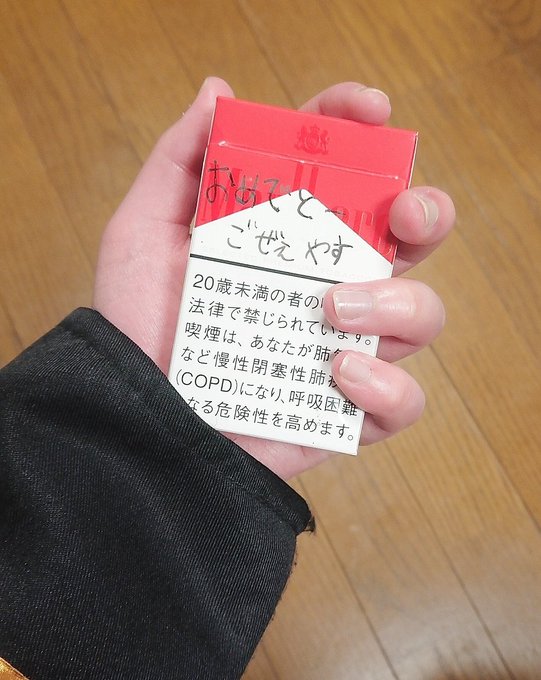 おめでとー
ごぜえやす
20歳未満の者の
法律で禁じられています。
喫煙は、あなたが肺
など慢性閉塞性肺疾
(COPD)になり、呼吸困難
なる危険性を高めます。